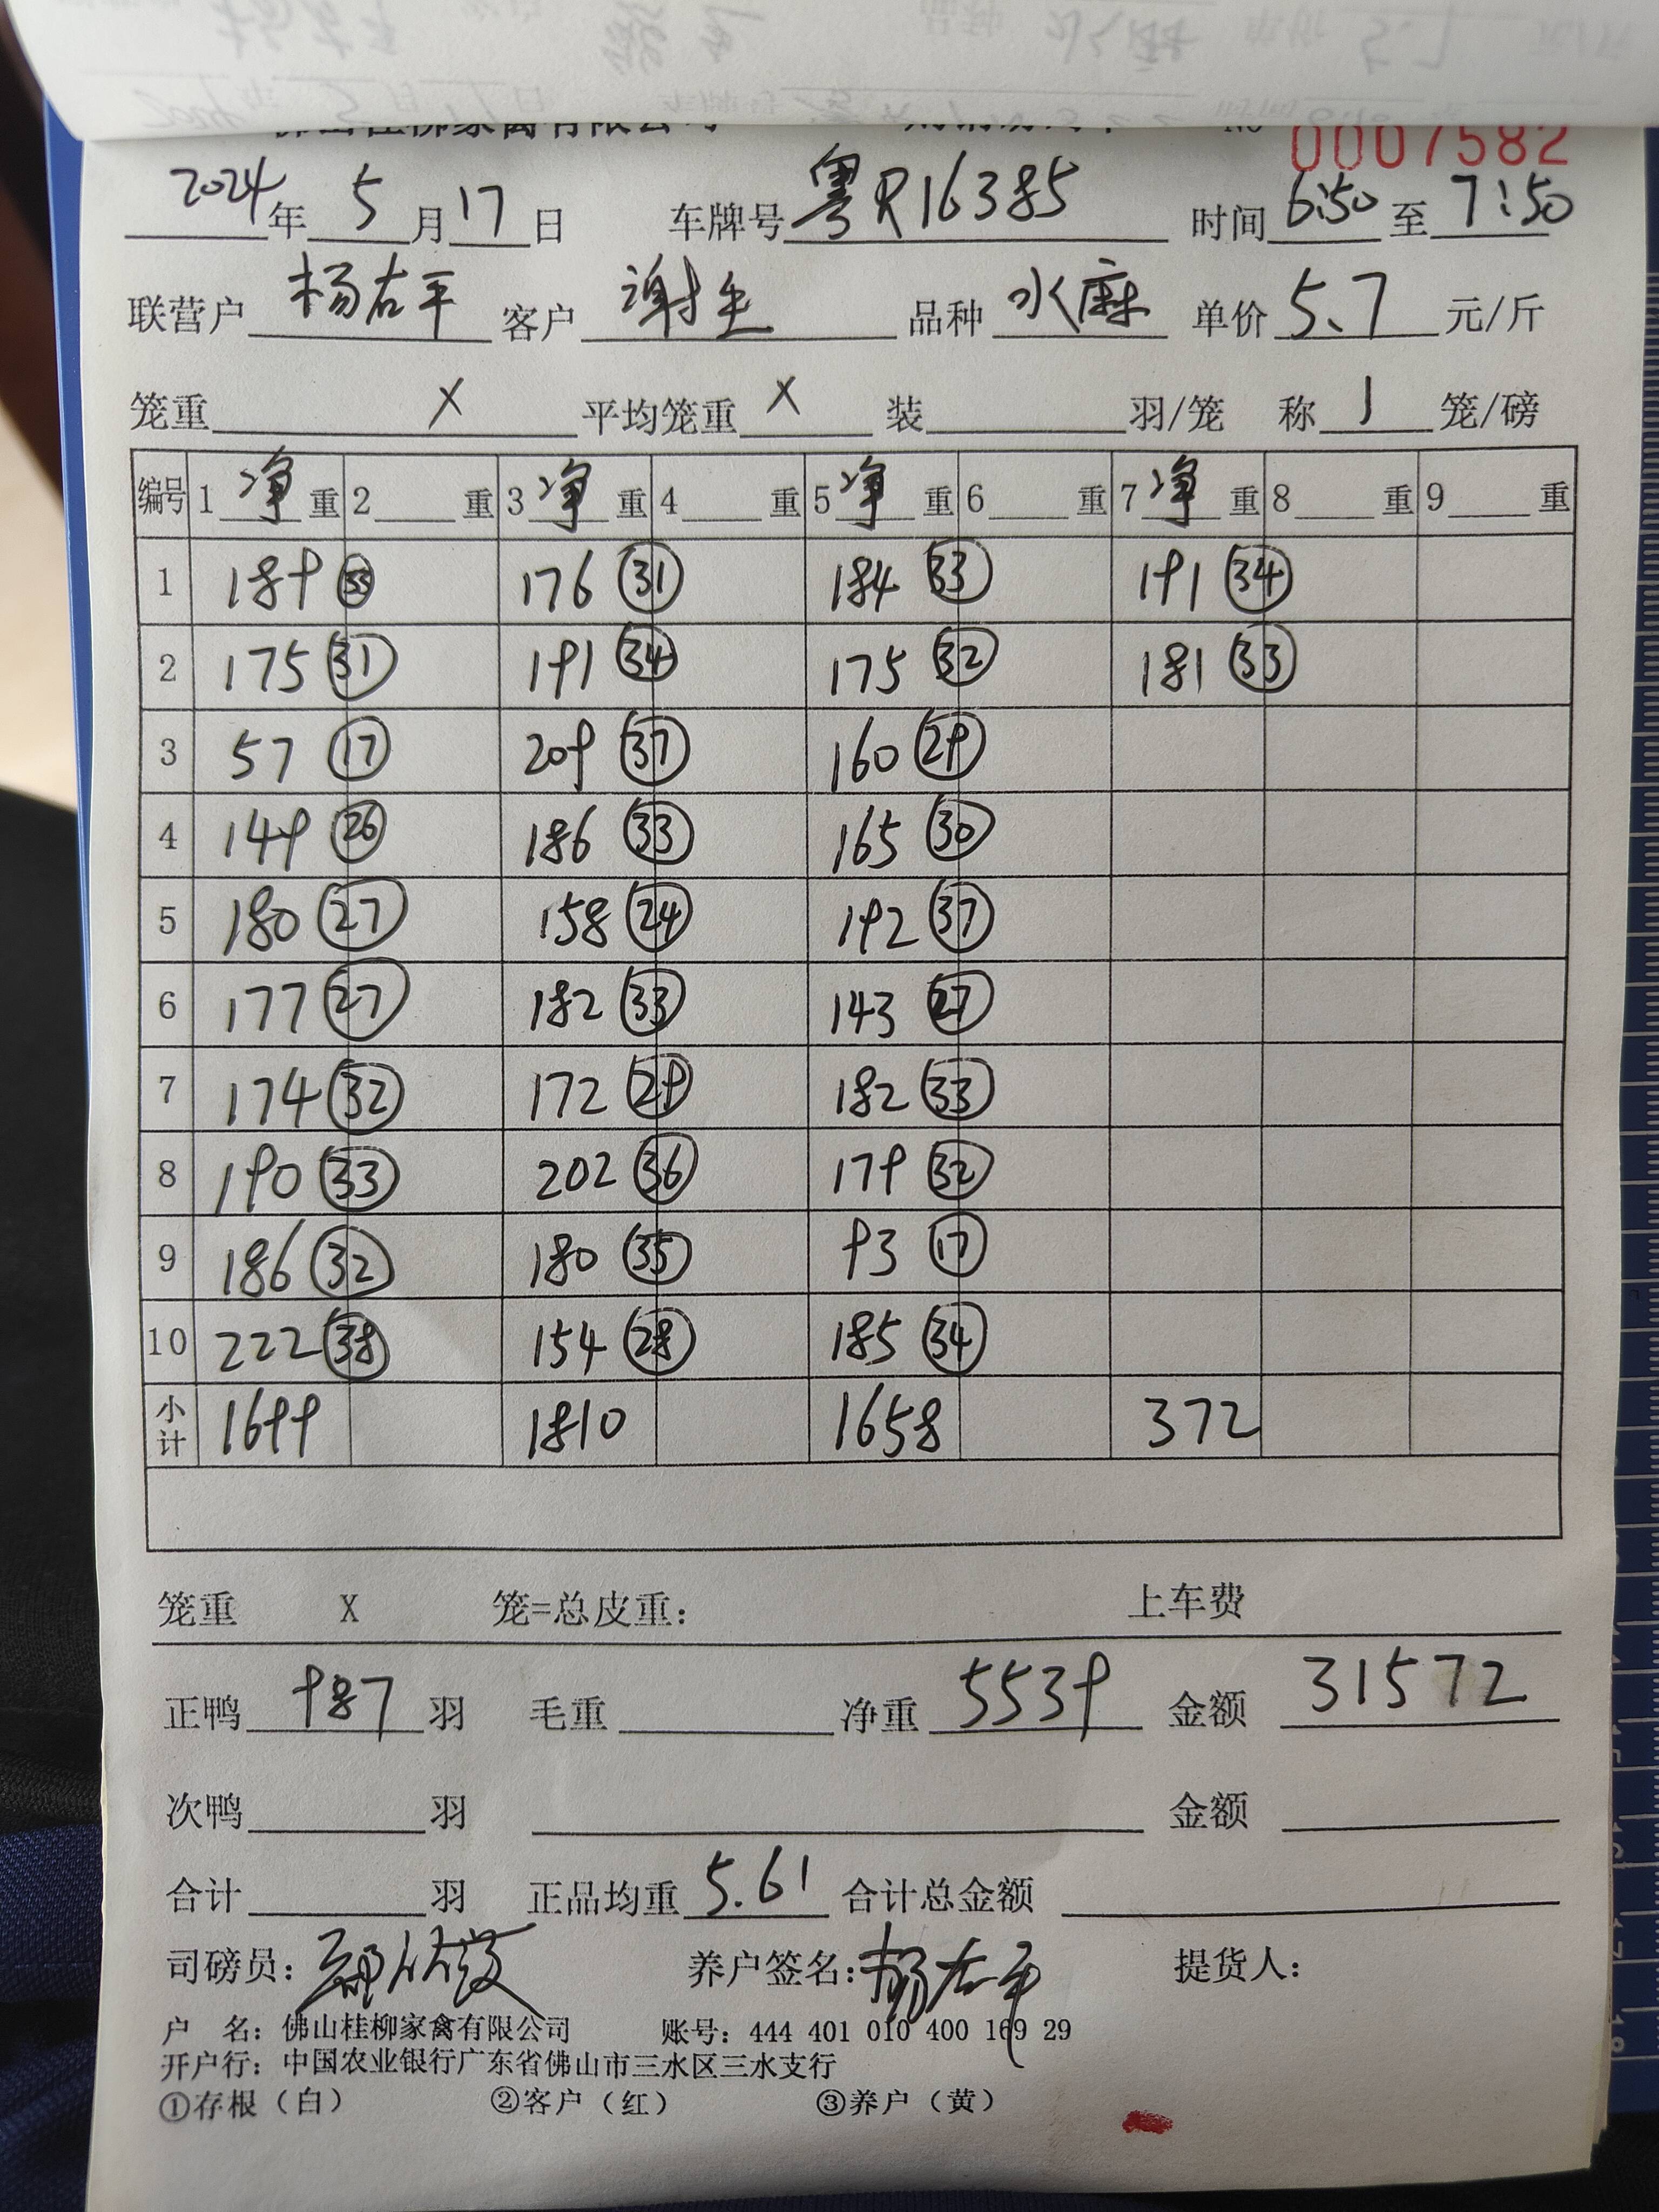 佛山桂柳家禽有限公司 No 0007582
2024年 5月17日 车牌号 粤R16385 时间 6:50 至 7:50
联营户 杨右平 客户 谢生 品种 水麻 单价 5.7 元/斤
笼重 X 平均笼重 X 装 羽/笼 称 1 笼/磅
编号 1 净 重 2 重 3 净 重 4 重 5 净 重 6 重 7 净 重 8 重 9 重
1 189 33 176 31 184 33 191 34
2 175 31 191 34 175 32 181 33
3 57 17 209 37 160 29
4 149 26 186 33 165 30
5 180 27 158 24 192 37
6 177 27 182 33 143 27
7 174 32 172 29 182 33
8 190 33 202 36 179 32
9 186 32 180 35 93 17
10 222 38 154 28 185 34
小计 1699 1810 1658 372
笼重 X 笼=总皮重： 上车费
正鸭 987 羽 毛重 净重 5539 金额 31572
次鸭 羽 金额
合计 羽 正品均重 5.61 合计总金额
司磅员： 养户签名：杨右平 提货人：
户 名：佛山桂柳家禽有限公司 账号：444 401 010 400 169 29
开户行：中国农业银行广东省佛山市三水区三水支行
①存根（白） ②客户（红） ③养户（黄）